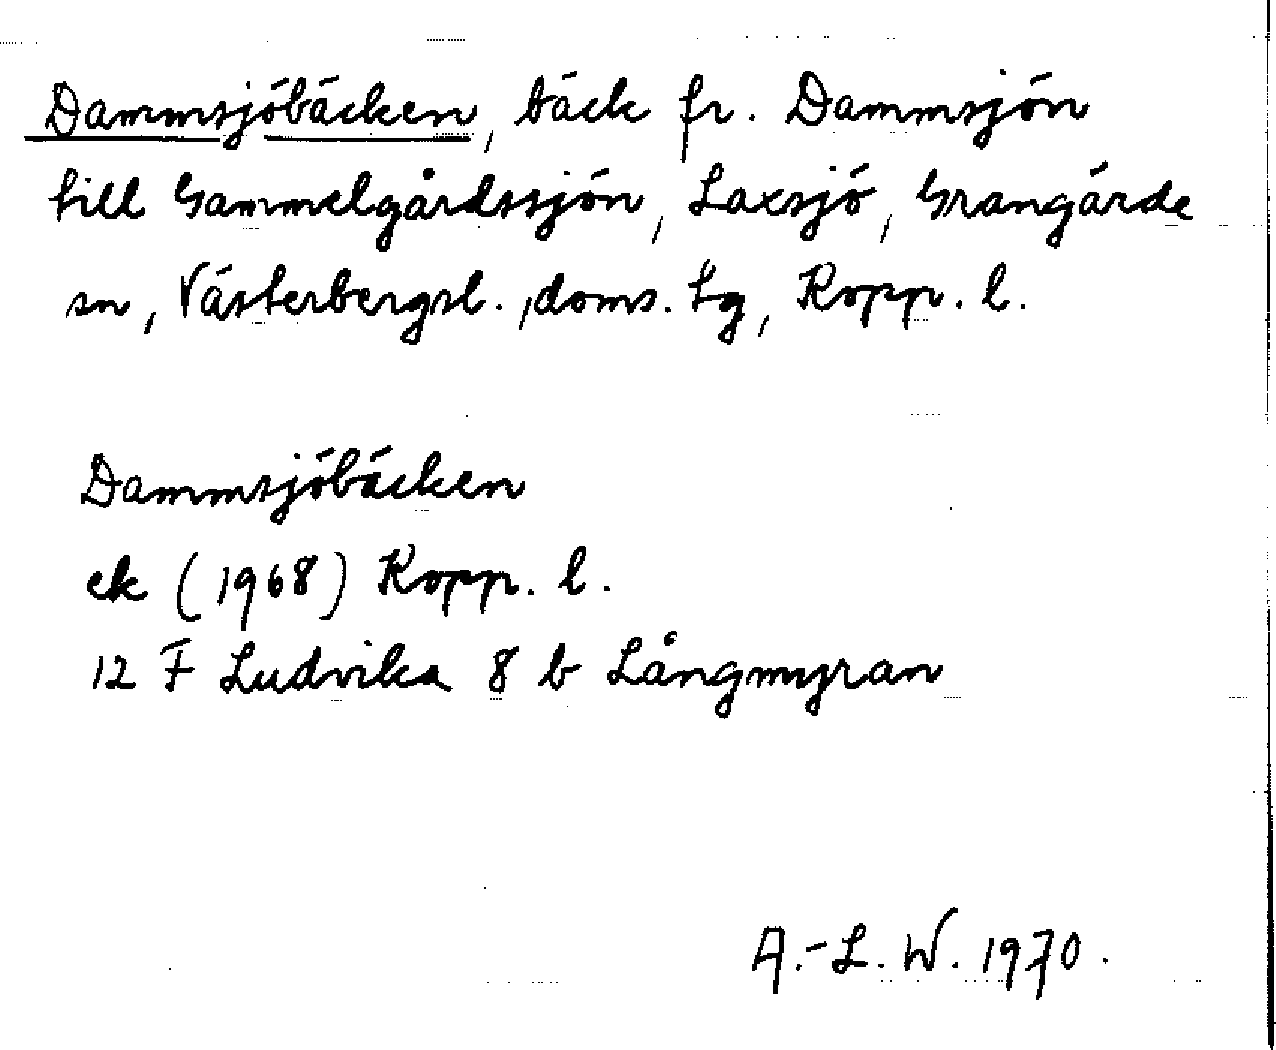 Dammsjöbäcken, bäck fr. Dammsjön
till Gammelgårdssjön, Laxsjö, Grangärde
sn, Västerbergsl., doms. tg, Kopp. l.
Dammsjöbäcken
ek (1968) Kopp. l.
12 F Ludvika 8 b Långmyran
A.-L. W. 1970.